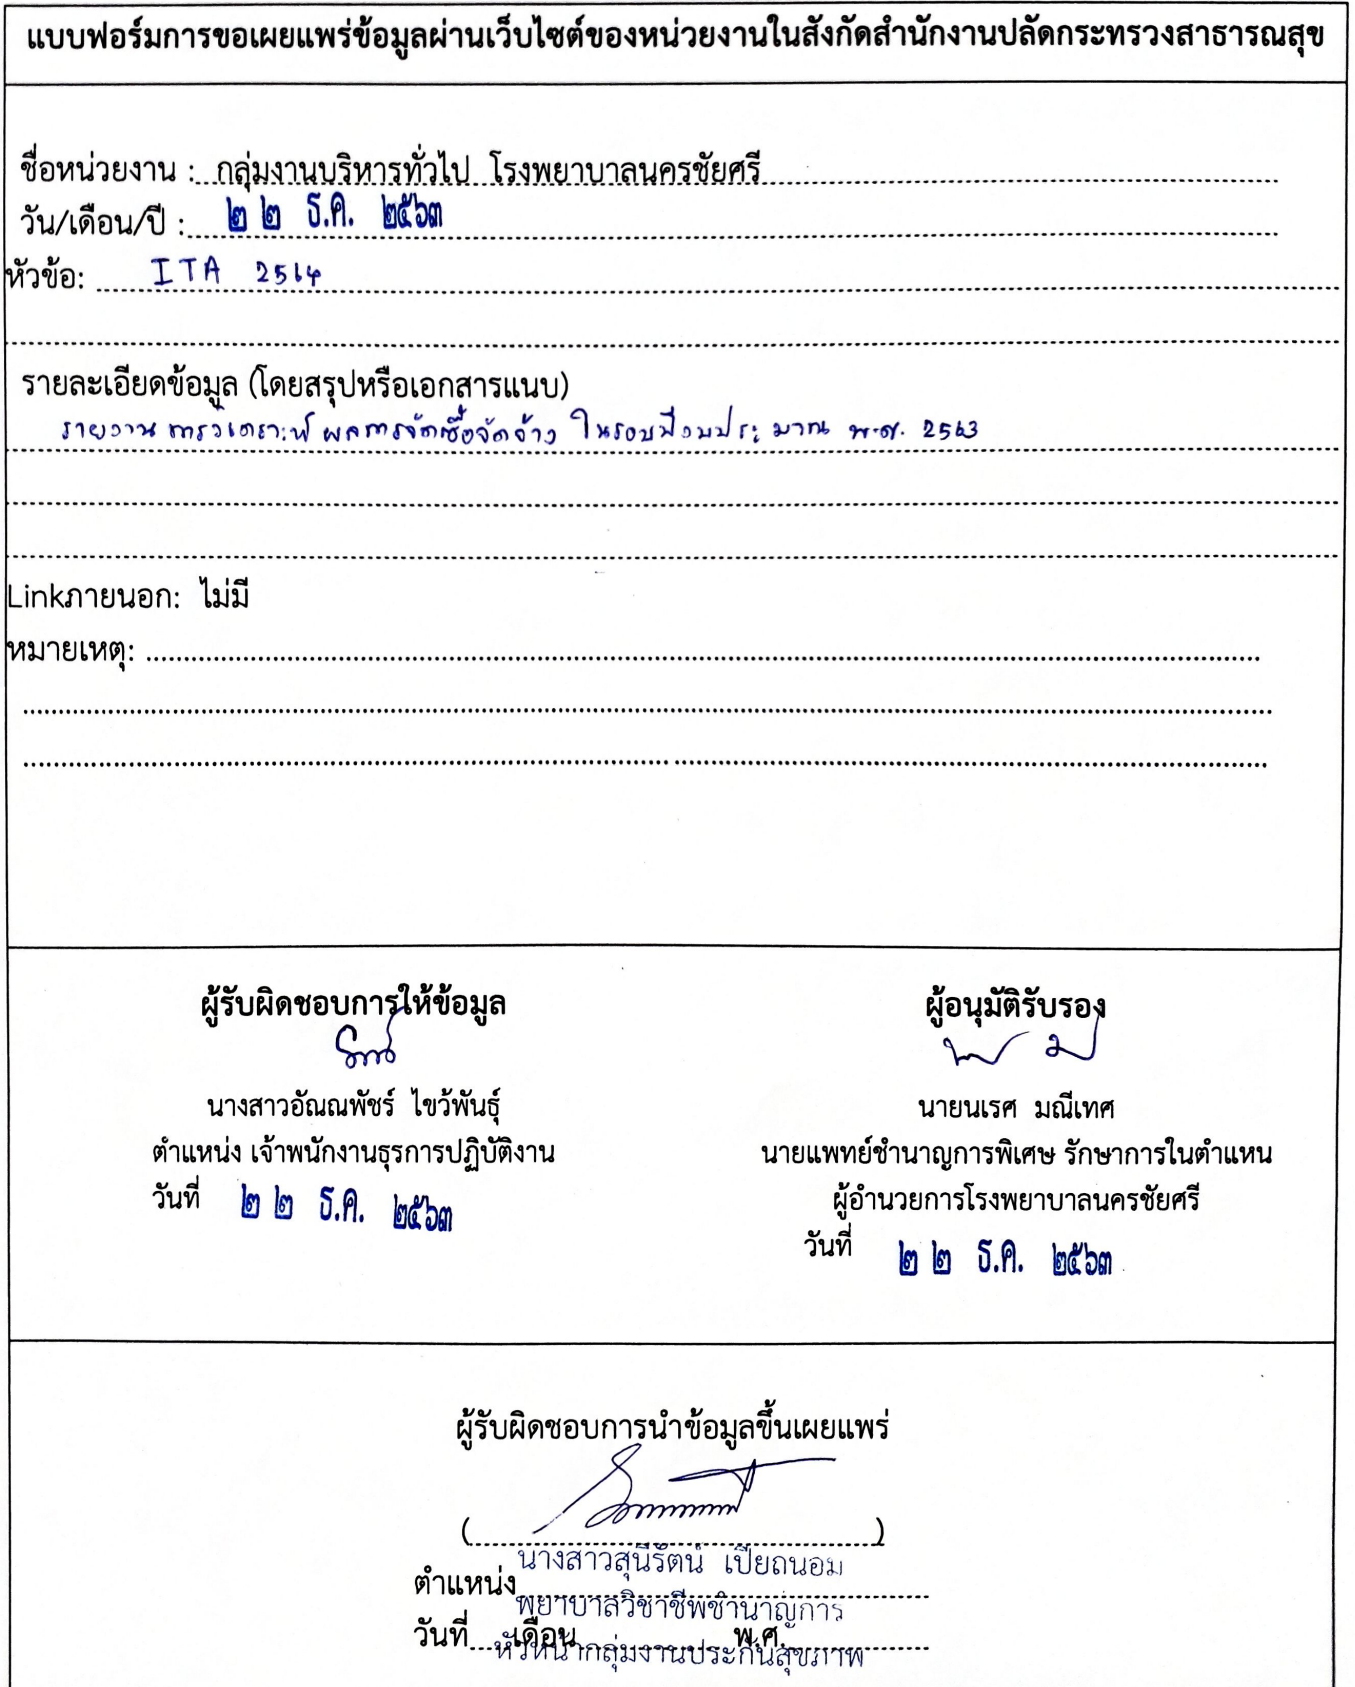 แบบฟอร์มการขอเผยแพร่ข้อมูลผ่านเว็บไซต์ของหน่วยงานในสังกัดสำนักงานปลัดกระทรวงสาธารณสุข
ชื่อหน่วยงาน : กลุ่มงานบริหารทั่วไป โรงพยาบาลนครชัยศรี
วัน/เดือน/ปี : ๒๒ ธ.ค. ๒๕๖๓
หัวข้อ: ITA 2564
รายละเอียดข้อมูล (โดยสรุปหรือเอกสารแนบ)
รายงานการวิเคราะห์ผลการจัดซื้อจัดจ้าง ในรอบปีงบประมาณ พ.ศ. 2563
Linkภายนอก: ไม่มี
หมายเหตุ:
ผู้รับผิดชอบการให้ข้อมูล
นางสาวอัณณพัชร์ ไขว้พันธุ์
ตำแหน่ง เจ้าพนักงานธุรการปฏิบัติงาน
วันที่ ๒๒ ธ.ค. ๒๕๖๓
ผู้อนุมัติรับรอง
นายนเรศ มณีเทศ
นายแพทย์ชำนาญการพิเศษ รักษาการในตำแหน
ผู้อำนวยการโรงพยาบาลนครชัยศรี
วันที่ ๒๒ ธ.ค. ๒๕๖๓
ผู้รับผิดชอบการนำข้อมูลขึ้นเผยแพร่
(                    )
นางสาวสุนีรัตน์ เปียถนอม
ตำแหน่ง
พยาบาลวิชาชีพชำนาญการ
วันที่ เดือน พ.ศ.
หัวหน้ากลุ่มงานประกันสุขภาพ